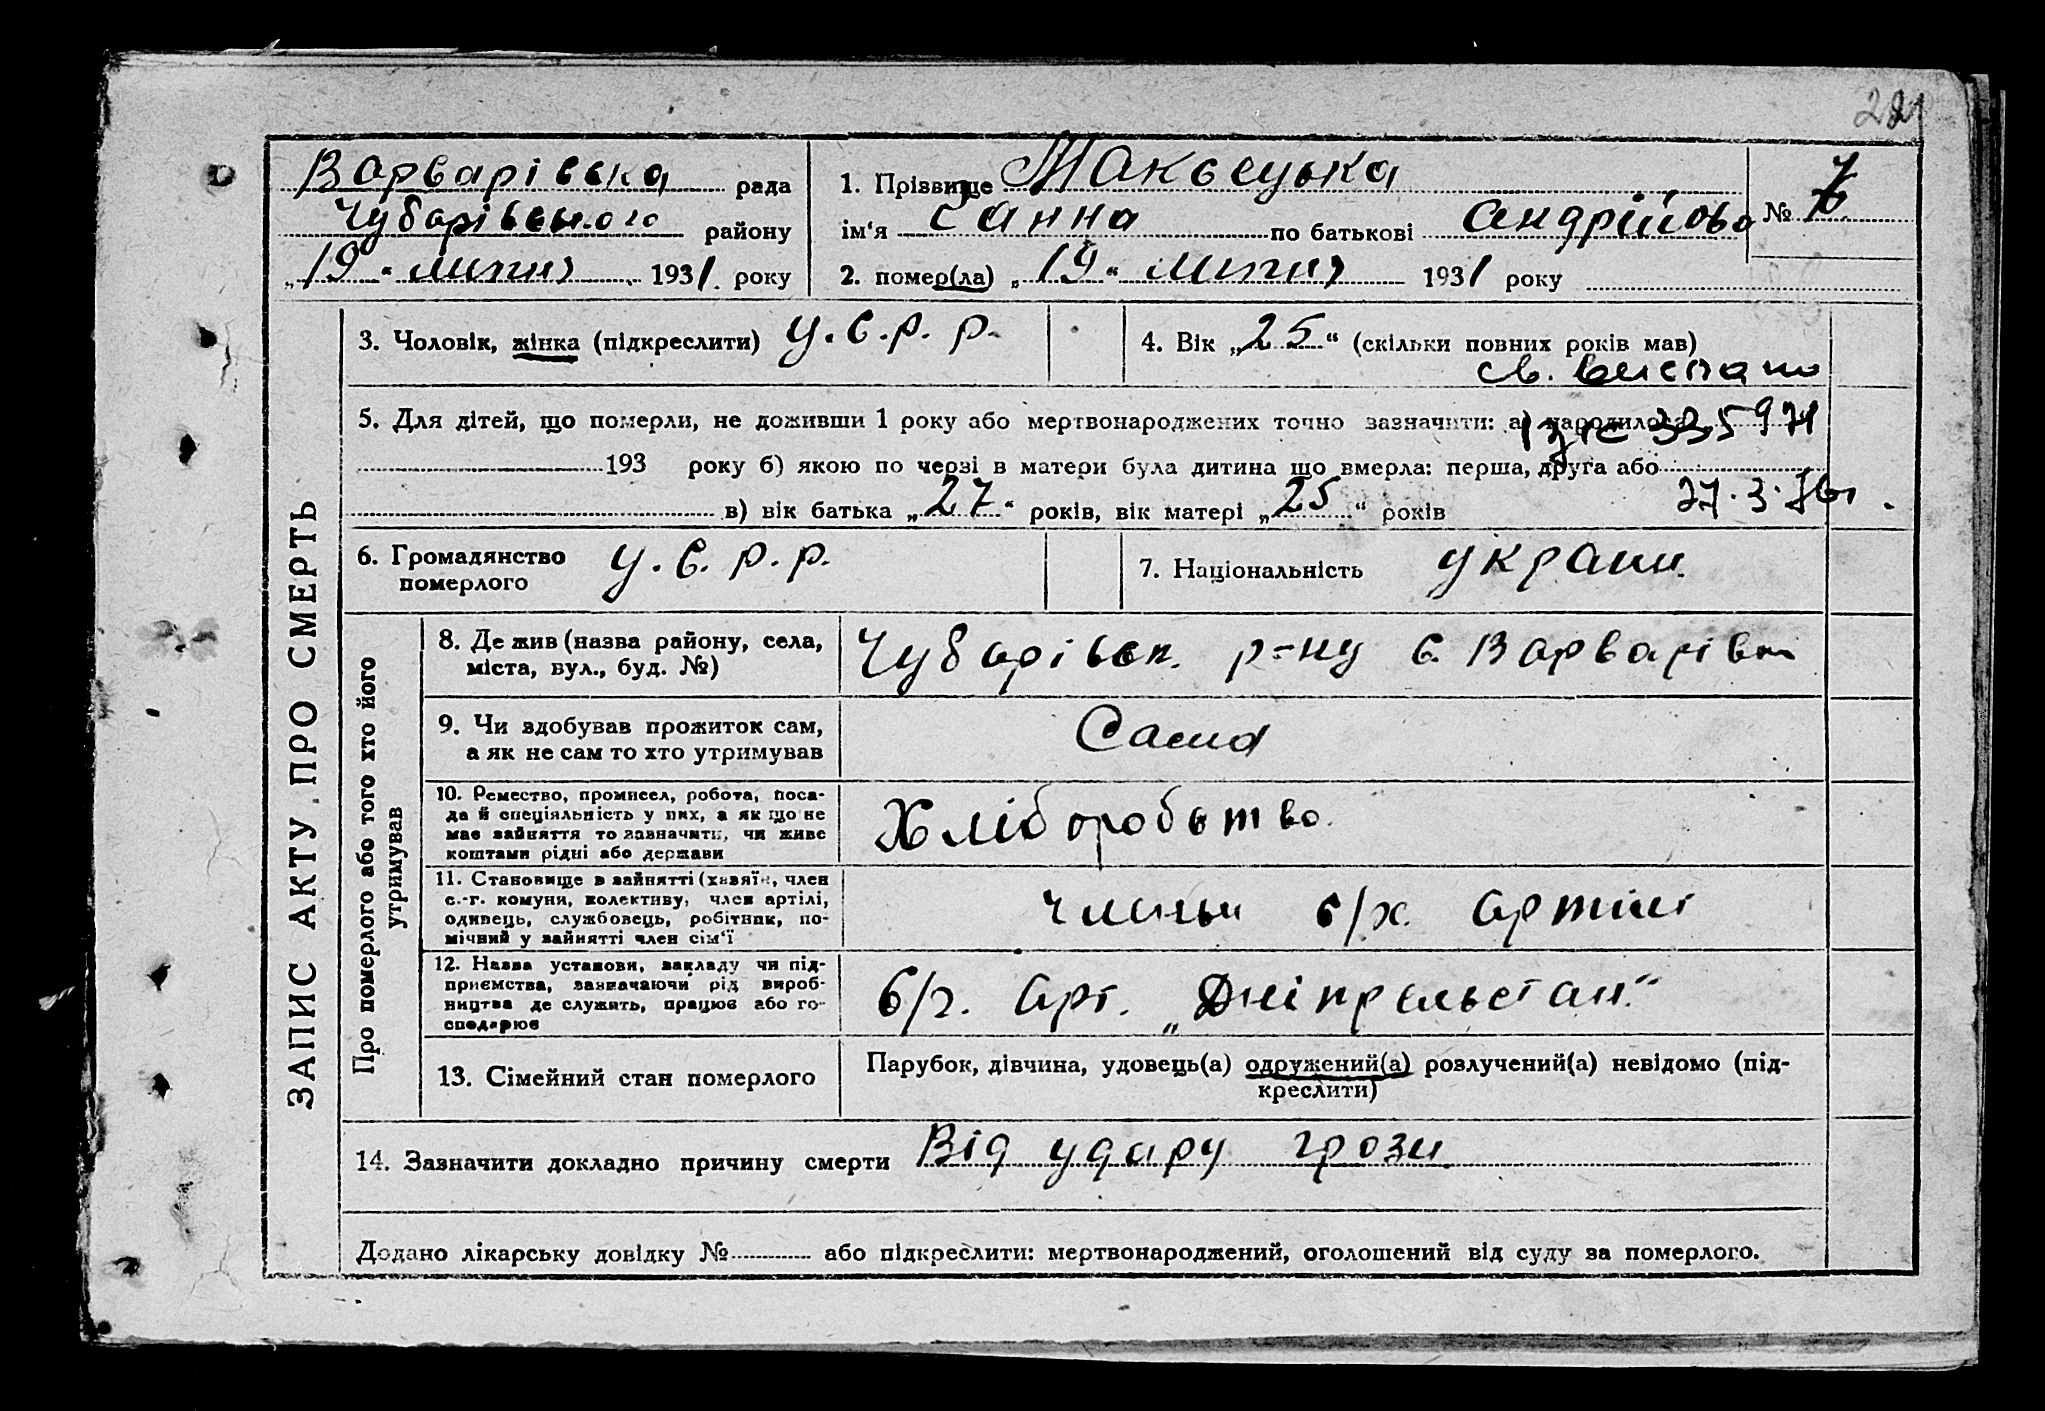 221
Варварівська рада
Чубарівського району
„19“ липня 1931 року
1. Прізвище Макսецька
ім'я Ганна по батькові Андрійова
№ 7
2. помер(ла) „19“ липня 1931 року
ЗАПИС АКТУ ПРО СМЕРТЬ
3. Чоловік, жінка (підкреслити) У.С.Р.Р.
4. Вік „25“ (скільки повних років мав)
св. виспано
5. Для дітей, що померли, не доживши 1 року або мертвонароджених точно зазначити: а) народилося
335971
193 року б) якою по черзі в матери була дитина що вмерла: перша, друга або
в) вік батька „27“ років, вік матері „25“ років
27.3.76г.
6. Громадянство померлого У.С.Р.Р.
7. Національність україн.
Про померлого або того хто його утримував
8. Де жив (назва району, села, міста, вул., буд. №)
Чубарівськ. р-ну с. Варварівка
9. Чи здобував прожиток сам, а як не сам то хто утримував
Сама
10. Ремество, промисел, робота, посада й спеціяльність у них, а як що не має зайняття то зазначити, чи живе коштами рідні або держави
Хліборобство.
11. Становище в зайнятті (хазяїн, член с.-г. комуни, колективу, член артілі, одинець, службовець, робітник, помічний у зайнятті член сім'ї
член с/х. артілі
12. Назва установи, закладу чи підприємства, зазначаючи рід виробництва де служить, працює або господарює
с/г. арт. „Дніпрельстан“
13. Сімейний стан померлого
Парубок, дівчина, удовець(а) одружений(а) розлучений(а) невідомо (підкреслити)
14. Зазначити докладно причину смерти Від удару грози
Додано лікарську довідку № або підкреслити: мертвонароджений, оголошений від суду за померлого.